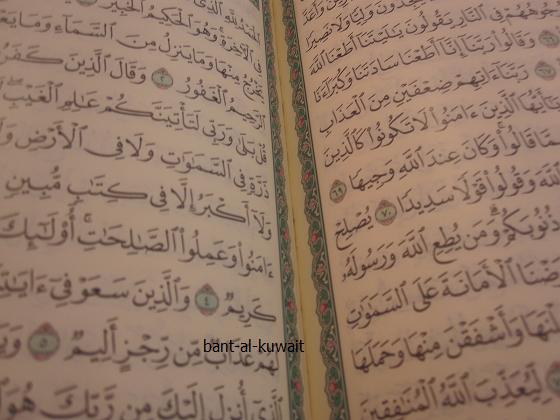 يَجِدُونَ وَلِيًّا وَلَا نَصِيرًا
وُجُوهُهُمْ فِي ٱلنَّارِ يَقُولُونَ يَٰلَيْتَنَآ أَطَعْنَا ٱللَّهَ
وَقَالُوا۟ رَبَّنَآ إِنَّآ أَطَعْنَا سَادَتَنَا وَكُبَرَآءَنَا
رَبَّنَآ ءَاتِهِمْ ضِعْفَيْنِ مِنَ ٱلْعَذَابِ
يَٰٓأَيُّهَا ٱلَّذِينَ ءَامَنُوا۟ لَا تَكُونُوا۟ كَٱلَّذِينَ
مِمَّا قَالُوا۟ وَكَانَ عِندَ ٱللَّهِ وَجِيهًا ٦٩
ٱللَّهَ وَقُولُوا۟ قَوْلًا سَدِيدًا ٧٠ يُصْلِحْ
ذُنُوبَكُمْ وَمَن يُطِعِ ٱللَّهَ وَرَسُولَهُۥ
ضْنَا ٱلْأَمَانَةَ عَلَى ٱلسَّمَٰوَٰتِ
وَأَشْفَقْنَ مِنْهَا وَحَمَلَهَا
لِّيُعَذِّبَ ٱللَّهُ ٱلْمُنَٰفِقِينَ
ٱلْحَمْدُ لِلَّهِ ٱلَّذِي
فِي ٱلْأَخِرَةِ وَهُوَ ٱلْحَكِيمُ ٱلْخَبِيرُ
يَخْرُجُ مِنْهَا وَمَا يَنزِلُ مِنَ ٱلسَّمَآءِ وَمَا يَعْ
ٱلرَّحِيمُ ٱلْغَفُورُ ٢ وَقَالَ ٱلَّذِينَ كَفَرُ
قُلْ بَلَىٰ وَرَبِّي لَتَأْتِيَنَّكُمْ عَٰلِمِ ٱلْغَيْبِ
ذَرَّةٍ فِي ٱلسَّمَٰوَٰتِ وَلَا فِي ٱلْأَرْضِ وَلَآ
وَلَآ أَكْبَرُ إِلَّا فِي كِتَٰبٍ مُّبِينٍ
ءَامَنُوا۟ وَعَمِلُوا۟ ٱلصَّٰلِحَٰتِ أُو۟لَٰٓئِكَ
كَرِيمٌ ٤ وَٱلَّذِينَ سَعَوْ فِيٓ ءَايَٰتِ
لَهُمْ عَذَابٌ مِّن رِّجْزٍ أَلِيمٌ ٥ وَيَرَ
ٱلَّذِيٓ أُنزِلَ إِلَيْكَ مِن رَّبِّكَ هُوَ ٱ
bant-al-kuwait